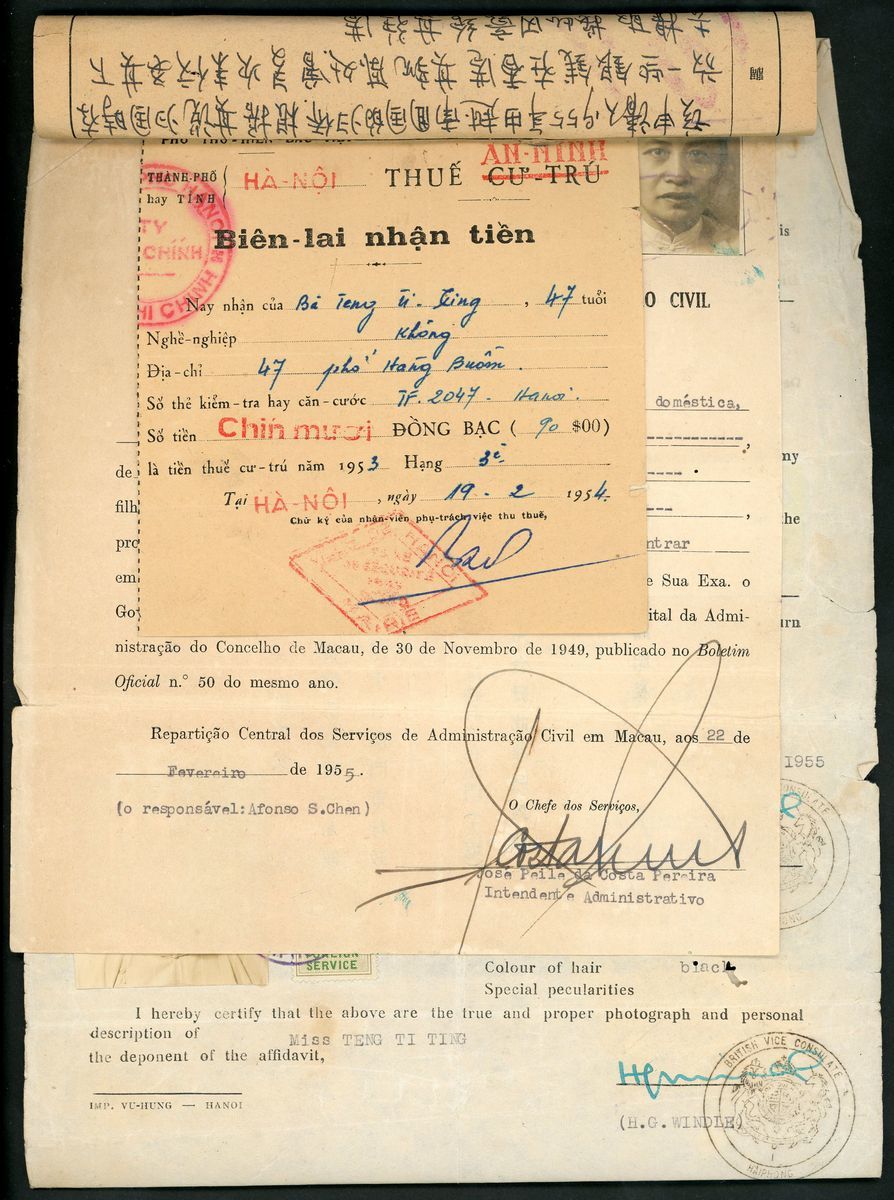 該申請人1955年由越南回國的归侨根据其说归国時存
放一些銀錢在香港其
THÀNH-PHỐ hay TỈNH { HÀ-NỘI
THUẾ CƯ-TRÚ
AN-NINH
Biên-lai nhận tiền
Nay nhận của Bà Teng Ti-Ting, 47 tuổi
Nghề-nghiệp Không
Địa-chỉ 47 phố Hàng Buồm.
Số thẻ kiểm-tra hay căn-cước TF. 2047. Hanoi.
Số tiền Chín mươi ĐỒNG BẠC ( 90 $00)
là tiền thuế cư-trú năm 1953 Hạng 3è
Tại HÀ-NỘI, ngày 19 - 2 1954.
Chữ ký của nhân-viên phụ-trách việc thu thuế,
is
O CIVIL
doméstica,
my
the
ntrar
de
filh
pro
em
e Sua Exa. o
Go
ital da Admi-
urn
nistração do Concelho de Macau, de 30 de Novembro de 1949, publicado no Boletim
Oficial n.° 50 do mesmo ano.
Repartição Central dos Serviços de Administração Civil em Macau, aos 22 de
Fevereiro de 1955.
1955
(o responsável:Afonso S.Chen)
O Chefe dos Serviços,
José Peile da Costa Pereira
Intendente Administrativo
FOREIGN
SERVICE
Colour of hair black
Special pecularities
I hereby certify that the above are the true and proper photograph and personal
description of Miss TENG TI TING
the deponent of the affidavit,
BRITISH VICE CONSULATE
HAIPHONG
IMP. VU-HUNG — HANOI
(H.G. WINDLE)